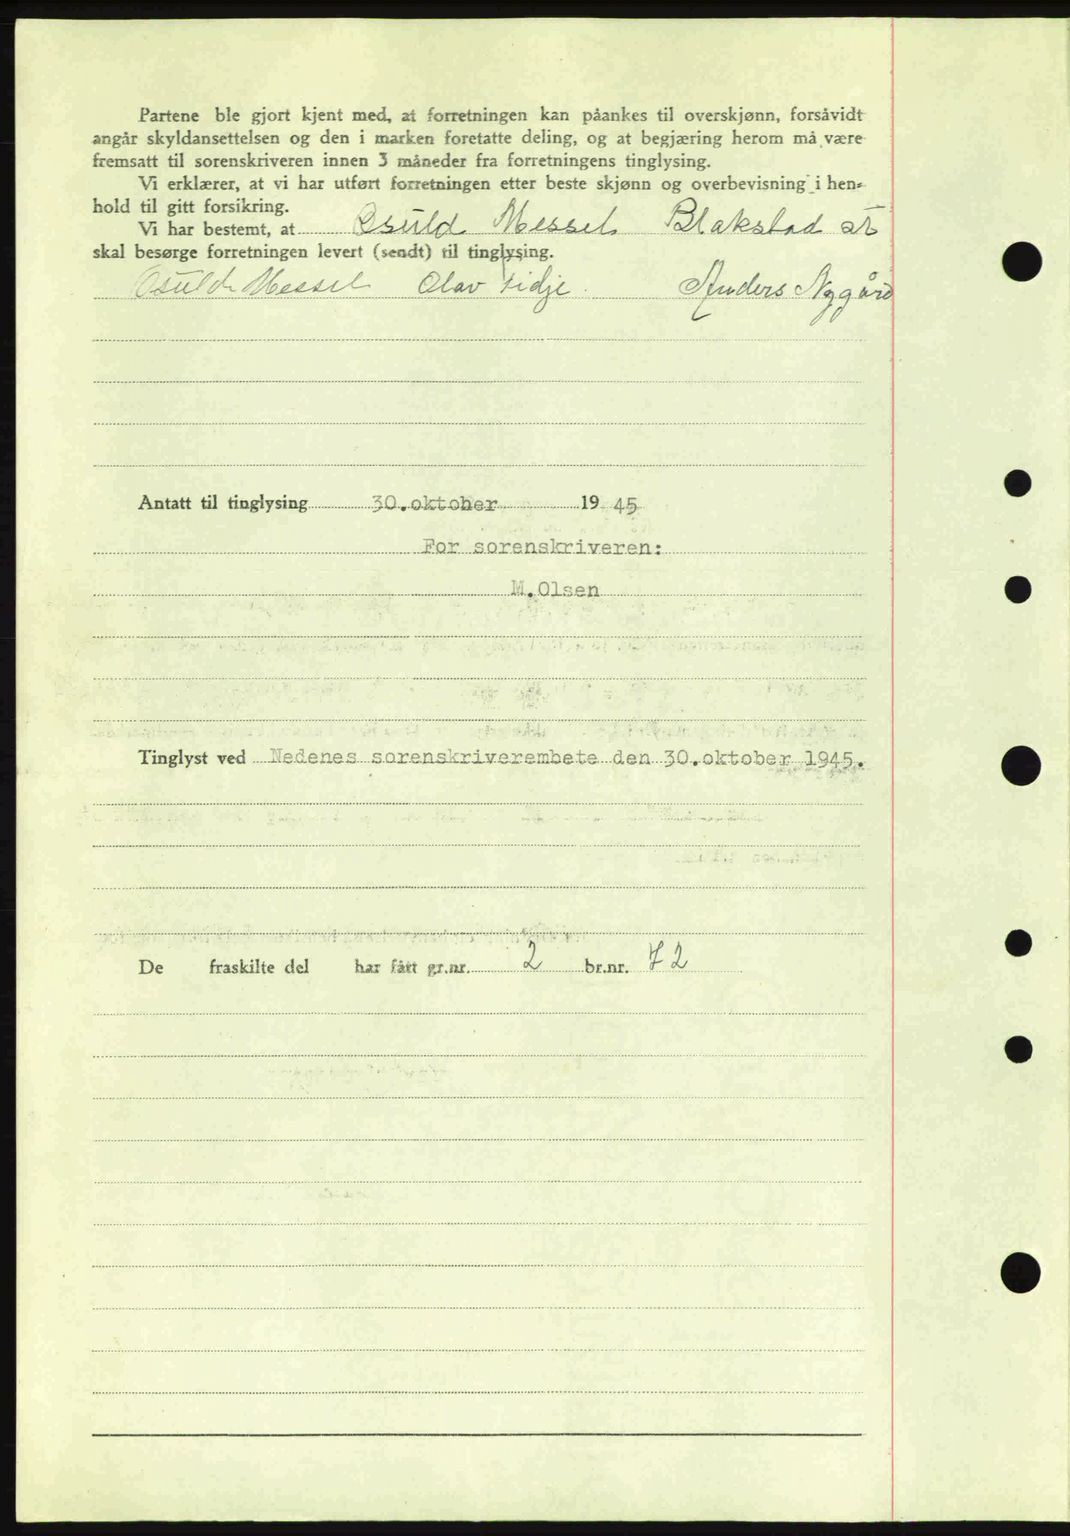 Partene ble gjort kjent med, at forretningen kan påankes til overskjønn, forsåvidt
angår skyldansettelsen og den i marken foretatte deling, og at begjæring herom må være
fremsatt til sorenskriveren innen 3 måneder fra forretningens tinglysing.
Vi erklærer, at vi har utført forretningen etter beste skjønn og overbevisning i hen-
hold til gitt forsikring.
Vi har bestemt, at Osuld Messel Blakstad st
skal besørge forretningen levert (sendt) til tinglysing.
Osuld Messel Olav Fidje Anders Nygård
Antatt til tinglysing 30.oktober 19 45
For sorenskriveren:
M.Olsen
Tinglyst ved Nedenes sorenskriverembete den 30.oktober 1945.
De fraskilte del har fått gr.nr. 2 br.nr. 72